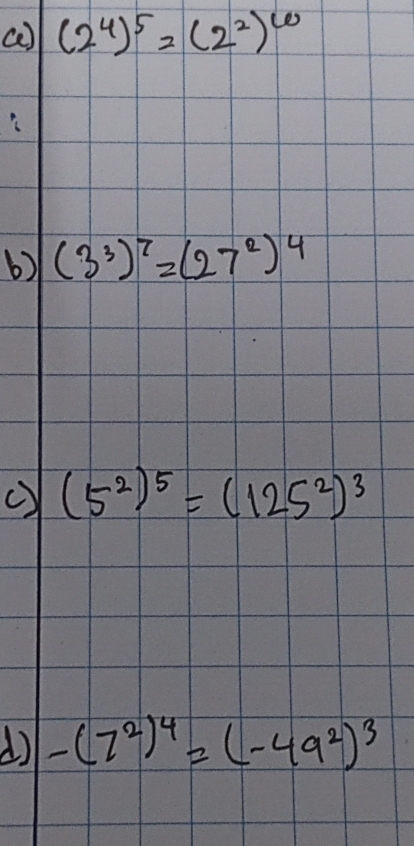 a) (2⁴)⁵ = (2²)¹⁰
b) (3³)⁷ = (27²)⁴
c) (5²)⁵ = (125²)³
d) -(7²)⁴ = (-49²)³